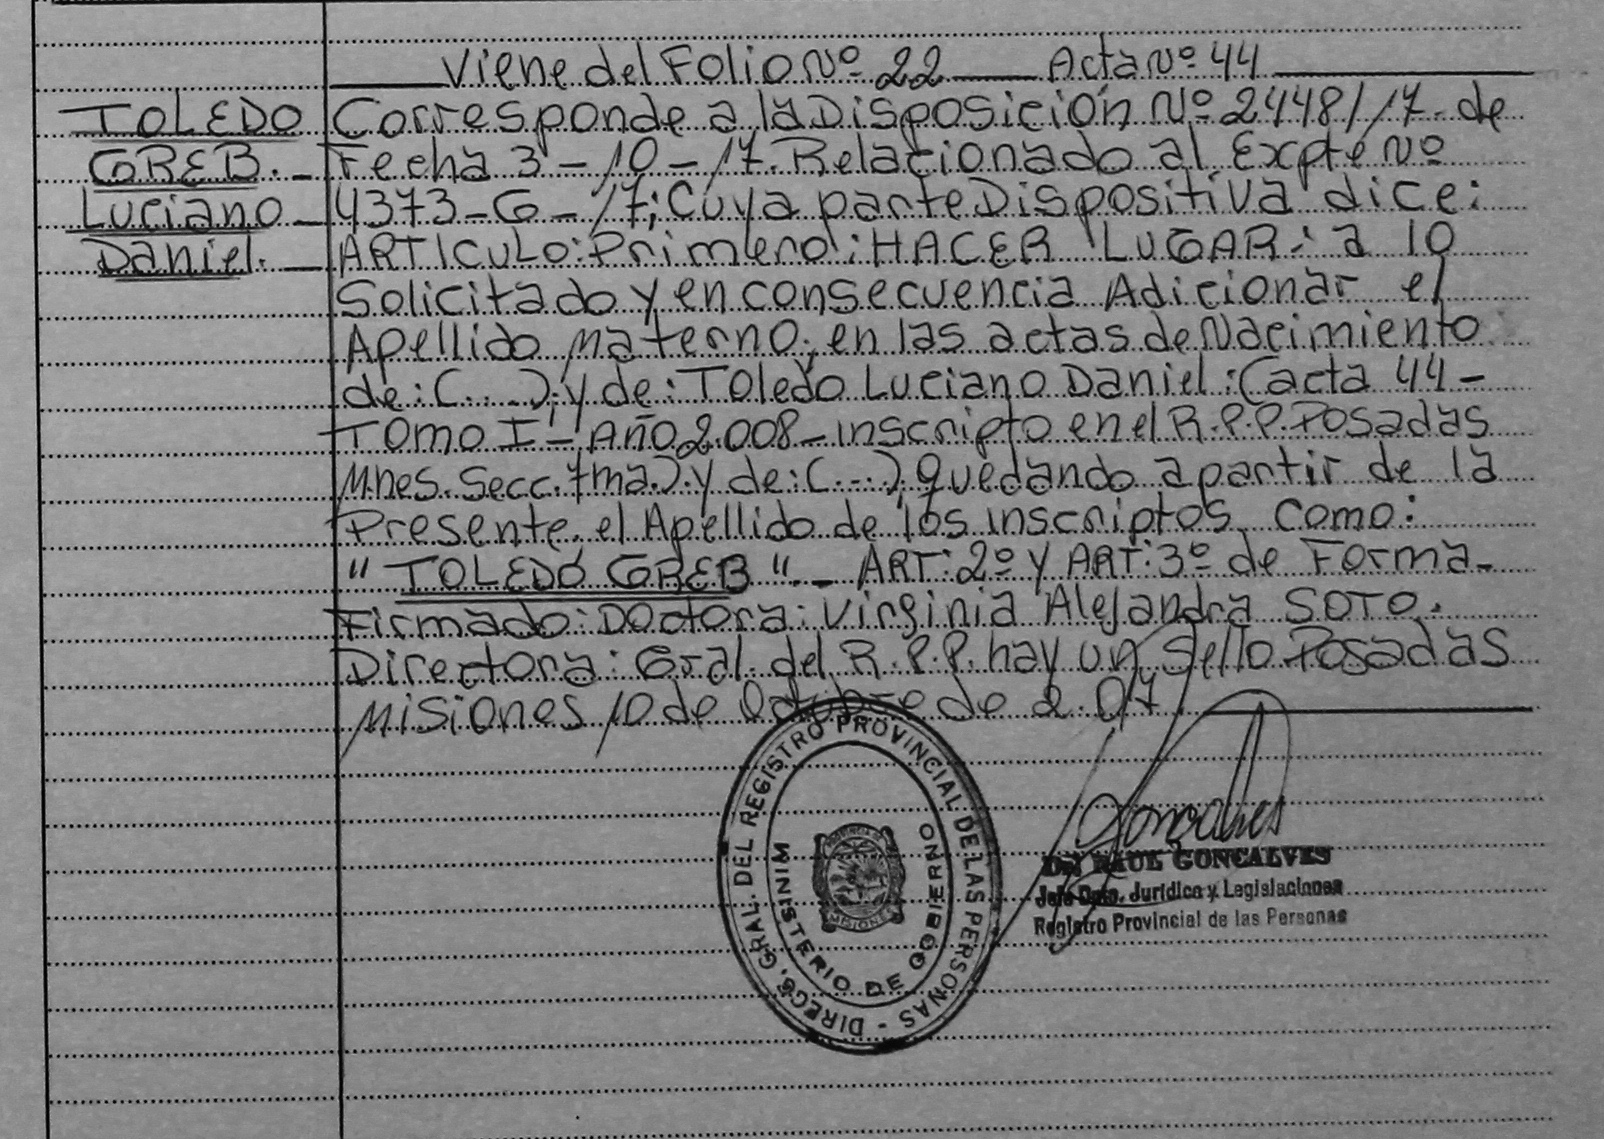 Viene del Folio Nº 22 ___ Acta Nº 44
TOLEDO
GREB. _
Luciano _
Daniel. _
Corresponde a la Disposición Nº 2448/17. de
Fecha 3-10-17. Relacionado al Expte Nº
4373-G-17; Cuya parte Dispositiva dice:
ARTICULO: Primero: HACER LUGAR: a lo
Solicitado y en consecuencia Adicionar el
Apellido Materno, en las actas de Nacimiento
de: (....); y de: Toledo Luciano Daniel: (acta 44-
Tomo I- Año 2.008- inscripto en el R.P.P. Posadas
Mnes. Secc. 7ma.) y de: (...) quedando a partir de la
Presente, el Apellido de los inscriptos Como:
"TOLEDO GREB". _ ART: 2º y ART: 3º de Forma-
Firmado: Doctora: Virginia Alejandra SOTO.
Directora: Gral. del R.P.P. hay un Sello Posadas
Misiones 10 de Octubre de 2.017
DIRECC. GRAL. DEL REGISTRO PROVINCIAL DE LAS PERSONAS -
MINISTERIO DE GOBIERNO
MISIONES
Goncalves
Dr. RAUL GONCALVES
Jefe Dpto. Jurídico y Legislaciones
Registro Provincial de las Personas